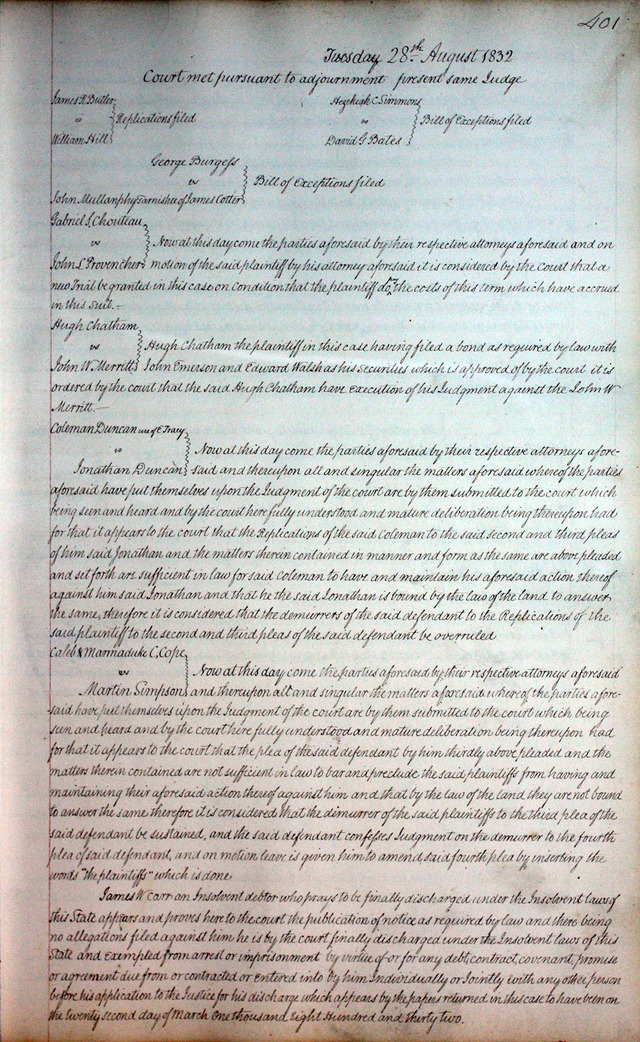 401
Tuesday 28th August 1832
Court met pursuant to adjournment present same Judge
James R Butler
vs Replications filed
William Hill
Hezekiah C. Simmons
vs Bill of Exceptions filed
David G Bates
George Burgess
vs Bill of Exceptions filed
John Mullanphy Garnishee of James Cotter
Gabriel S. Chouteau
vs Now at this day come the parties aforesaid by their respective attorneys aforesaid and on
John L Provencher motion of the said plaintiff by his attorney aforesaid it is considered by the Court that a
new Trial be granted in this case on condition that the plaintiff the costs of this term which have accrued
in this suit.—
Hugh Chatham
vs Hugh Chatham the plaintiff in this case having filed a bond as required by law with
John W. Merritt John Emerson and Edward Walsh as his securities which is approved of by the court it is
ordered by the court that the said Hugh Chatham have execution of his Judgment against the John W
Merritt.—
Coleman Duncan use of E Tracy
vs Now at this day come the parties aforesaid by their respective attorneys afore-
Jonathan Duncan said and thereupon all and singular the matters aforesaid whereof the parties
aforesaid have put themselves upon the Judgment of the court are by them submitted to the court which
being seen and heard and by the court here fully understood and mature deliberation being thereupon had
for that it appears to the court that the Replications of the said Coleman to the said second and third pleas
of him said Jonathan and the matters therein contained in manner and form as the same are above pleaded
and set forth are sufficient in law for said Coleman to have and maintain his aforesaid action thereof
against him said Jonathan and that he the said Jonathan is bound by the law of the land to answer
the same, therefore it is considered that the demurrers of the said defendant to the Replications of the
said plaintiff to the second and third pleas of the said defendant be overruled
Caleb & Marmaduke C, Cope
vs Now at this day come the parties aforesaid by their respective attorneys aforesaid
Martin Simpson and thereupon all and singular the matters aforesaid whereof the parties afore-
said have put themselves upon the Judgment of the court are by them submitted to the court which being
seen and heard and by the court here fully understood and mature deliberation being thereupon had
for that it appears to the court that the plea of the said defendant by him thirdly above pleaded and the
matters therein contained are not sufficient in law to bar and preclude the said plaintiffs from having and
maintaining their aforesaid action thereof against him and that by the law of the land they are not bound
to answer the same therefore it is considered that the demurrer of the said plaintiffs to the third plea of the
said defendant be sustained, and the said defendant confesses Judgment on the demurrer to the fourth
plea of said defendant, and on motion leave is given him to amend said fourth plea by inserting the
words "the plaintiffs" which is done
James W carr an Insolvent debtor who prays to be finally discharged under the Insolvent laws of
this State appears and proves here to the court the publication of notice as required by law and there being
no allegations filed against him he is by the court finally discharged under the Insolvent laws of this
State and Exempted from arrest or imprisonment by virtue of or for any debt, contract, covenant, promise
or agreement due from or contracted or Entered into by him Individually or Jointly with any other person
before his application to the Justice for his discharge which appears by the papers returned in this case to have been on
the twenty second day of March One thousand Eight Hundred and thirty two.